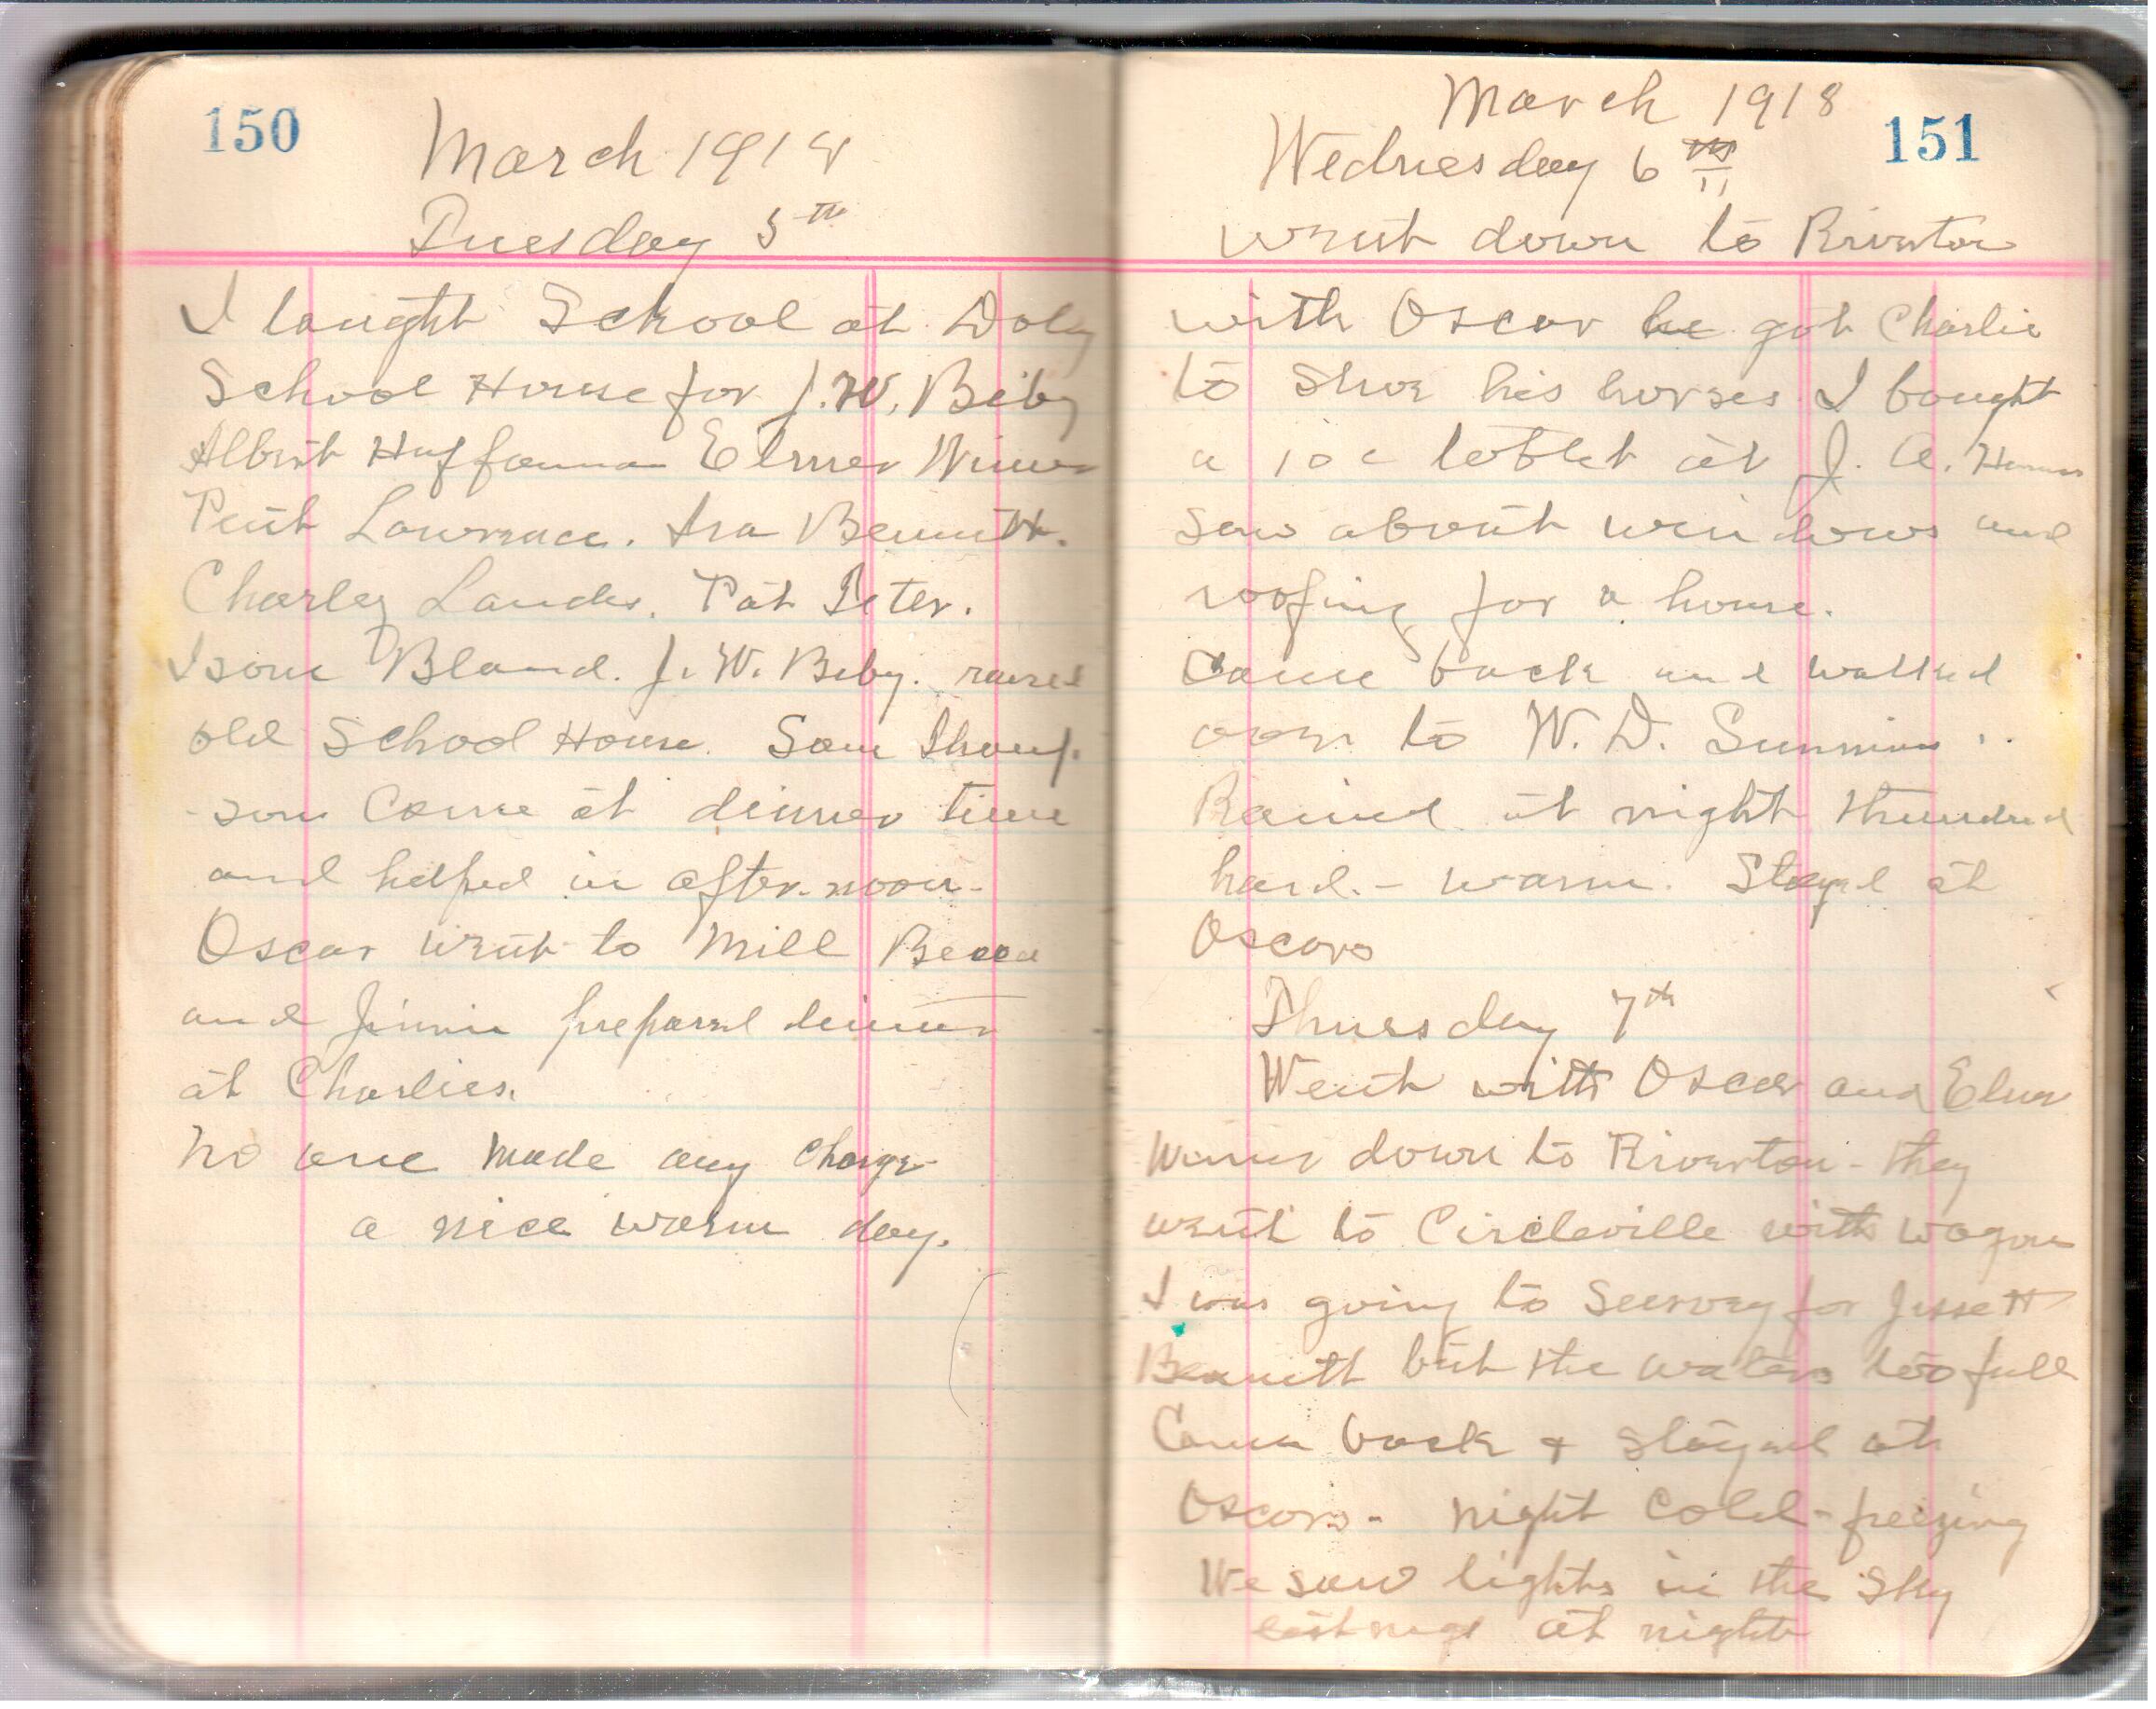 150
March 1918
Tuesday 5th
I taught School at Doly
School House for J.W. Biby
Albert Huffman Elmer Wimer
Pent Lawrence. Ira Bennett.
Charley Landes. Pat Teter.
Isom Bland. J. W. Biby. raised
old School House. Sam Thomp
-son Came at dinner time
and helped in after-noon-
Oscar went to Mill Becca
and Jinnie prepared dinner
at Charlies.
No one made any Charge
a nice warm day.
March 1918
151
Wednesday 6th
went down to Riverton
with Oscar he got Charlie
to Shoe his horses. I bought
a 10c tablet at J. A.
Saw about windows and
roofing for a house.
Came back and walked
over to W. D.
Rained at night thundred
hard. - warm. Stayed at
Oscars
Thursday 7th
Went with Oscar and Elmer
Wimer down to Riverton - they
went to Circleville with wagon
I was going to Survey for Jesse H
Bennett but the waters too full
Came back & stayed at
Oscars - night Cold - freezing
We saw lights in the Sky
at night